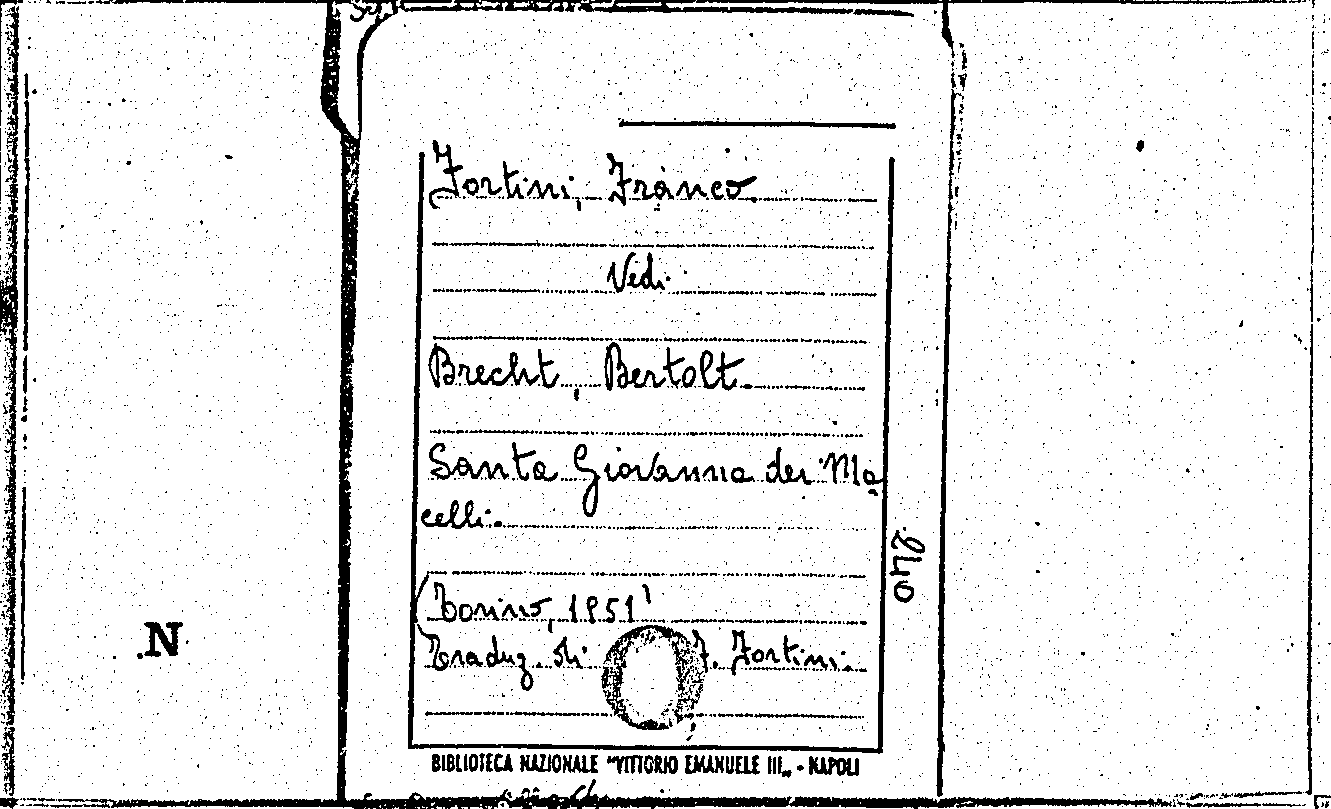 Fortini, Franco.
Vedi
Brecht, Bertolt.
Santa Giovanna dei Ma
celli.
240
Torino, 1951
Traduz. di F. Fortini.
.N
BIBLIOTECA NAZIONALE "VITTORIO EMANUELE III„ - NAPOLI